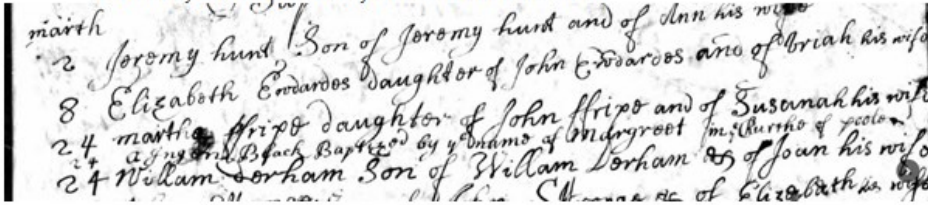 march
2 Jeremy hunt Son of Jeremy hunt and of Ann his wife
8 Elizabeth Edwardes daughter of John Edwardes and of Briah his wife
24 martha ffripe daughter of John ffripe and of Susanah his wife
24 a Black Baptized by ye name of Margreet in Church of poole
24 William Derham Son of William Derham & of Joan his wife
of Elizabeth his wife